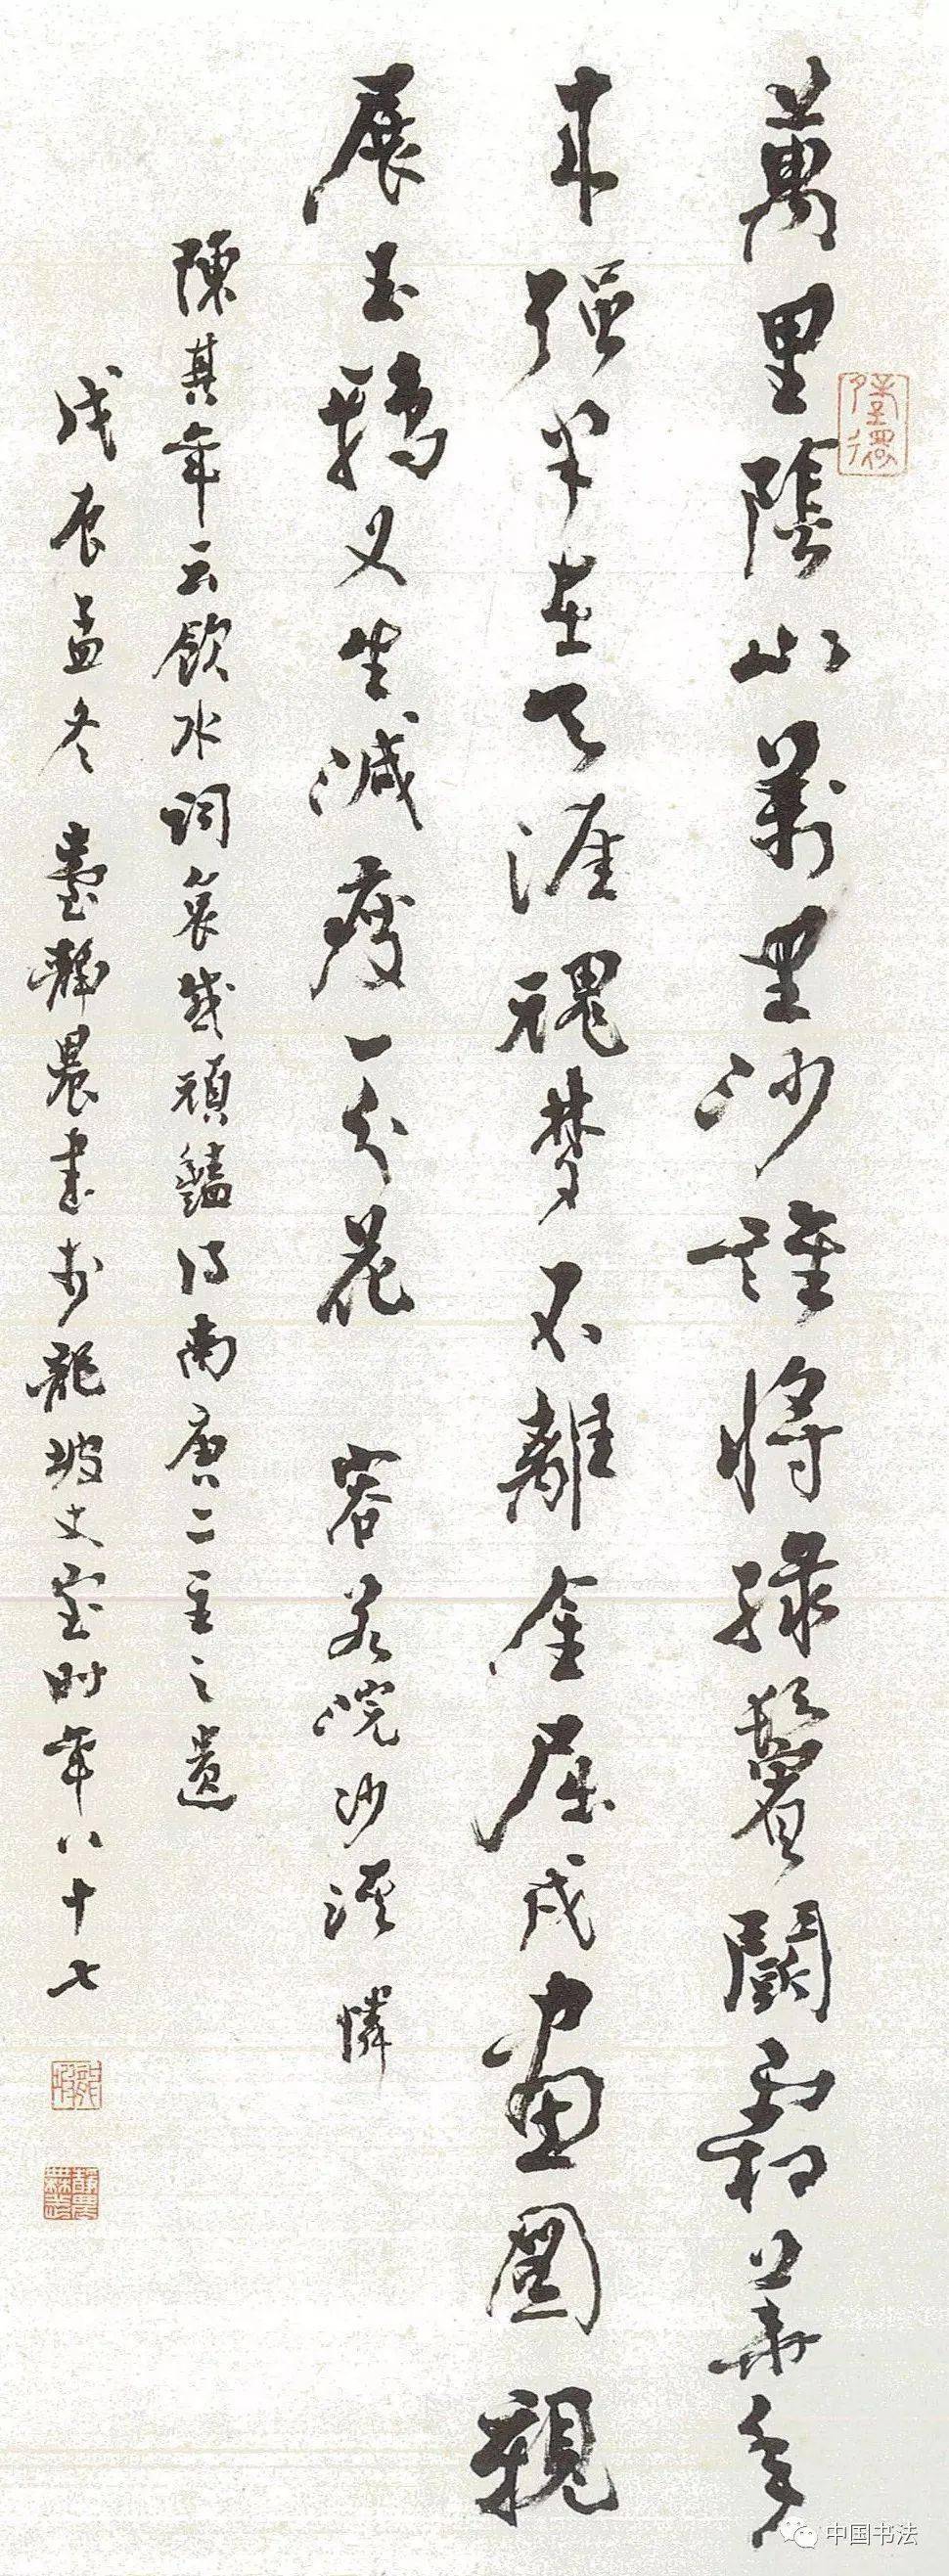 萬里陰山萬里沙誰將綠鬢鬪霜華年
來强半在天涯魂夢不離金屈戌畫圖親
展玉鴉叉生減瘦一分花 容若浣沙溪 憐
陳其年云飲水詞哀感頑豔得南唐二主之遺
戊辰孟冬 臺靜農書於龍坡丈室時年八十七
龍坡
靜農無恙
中国书法